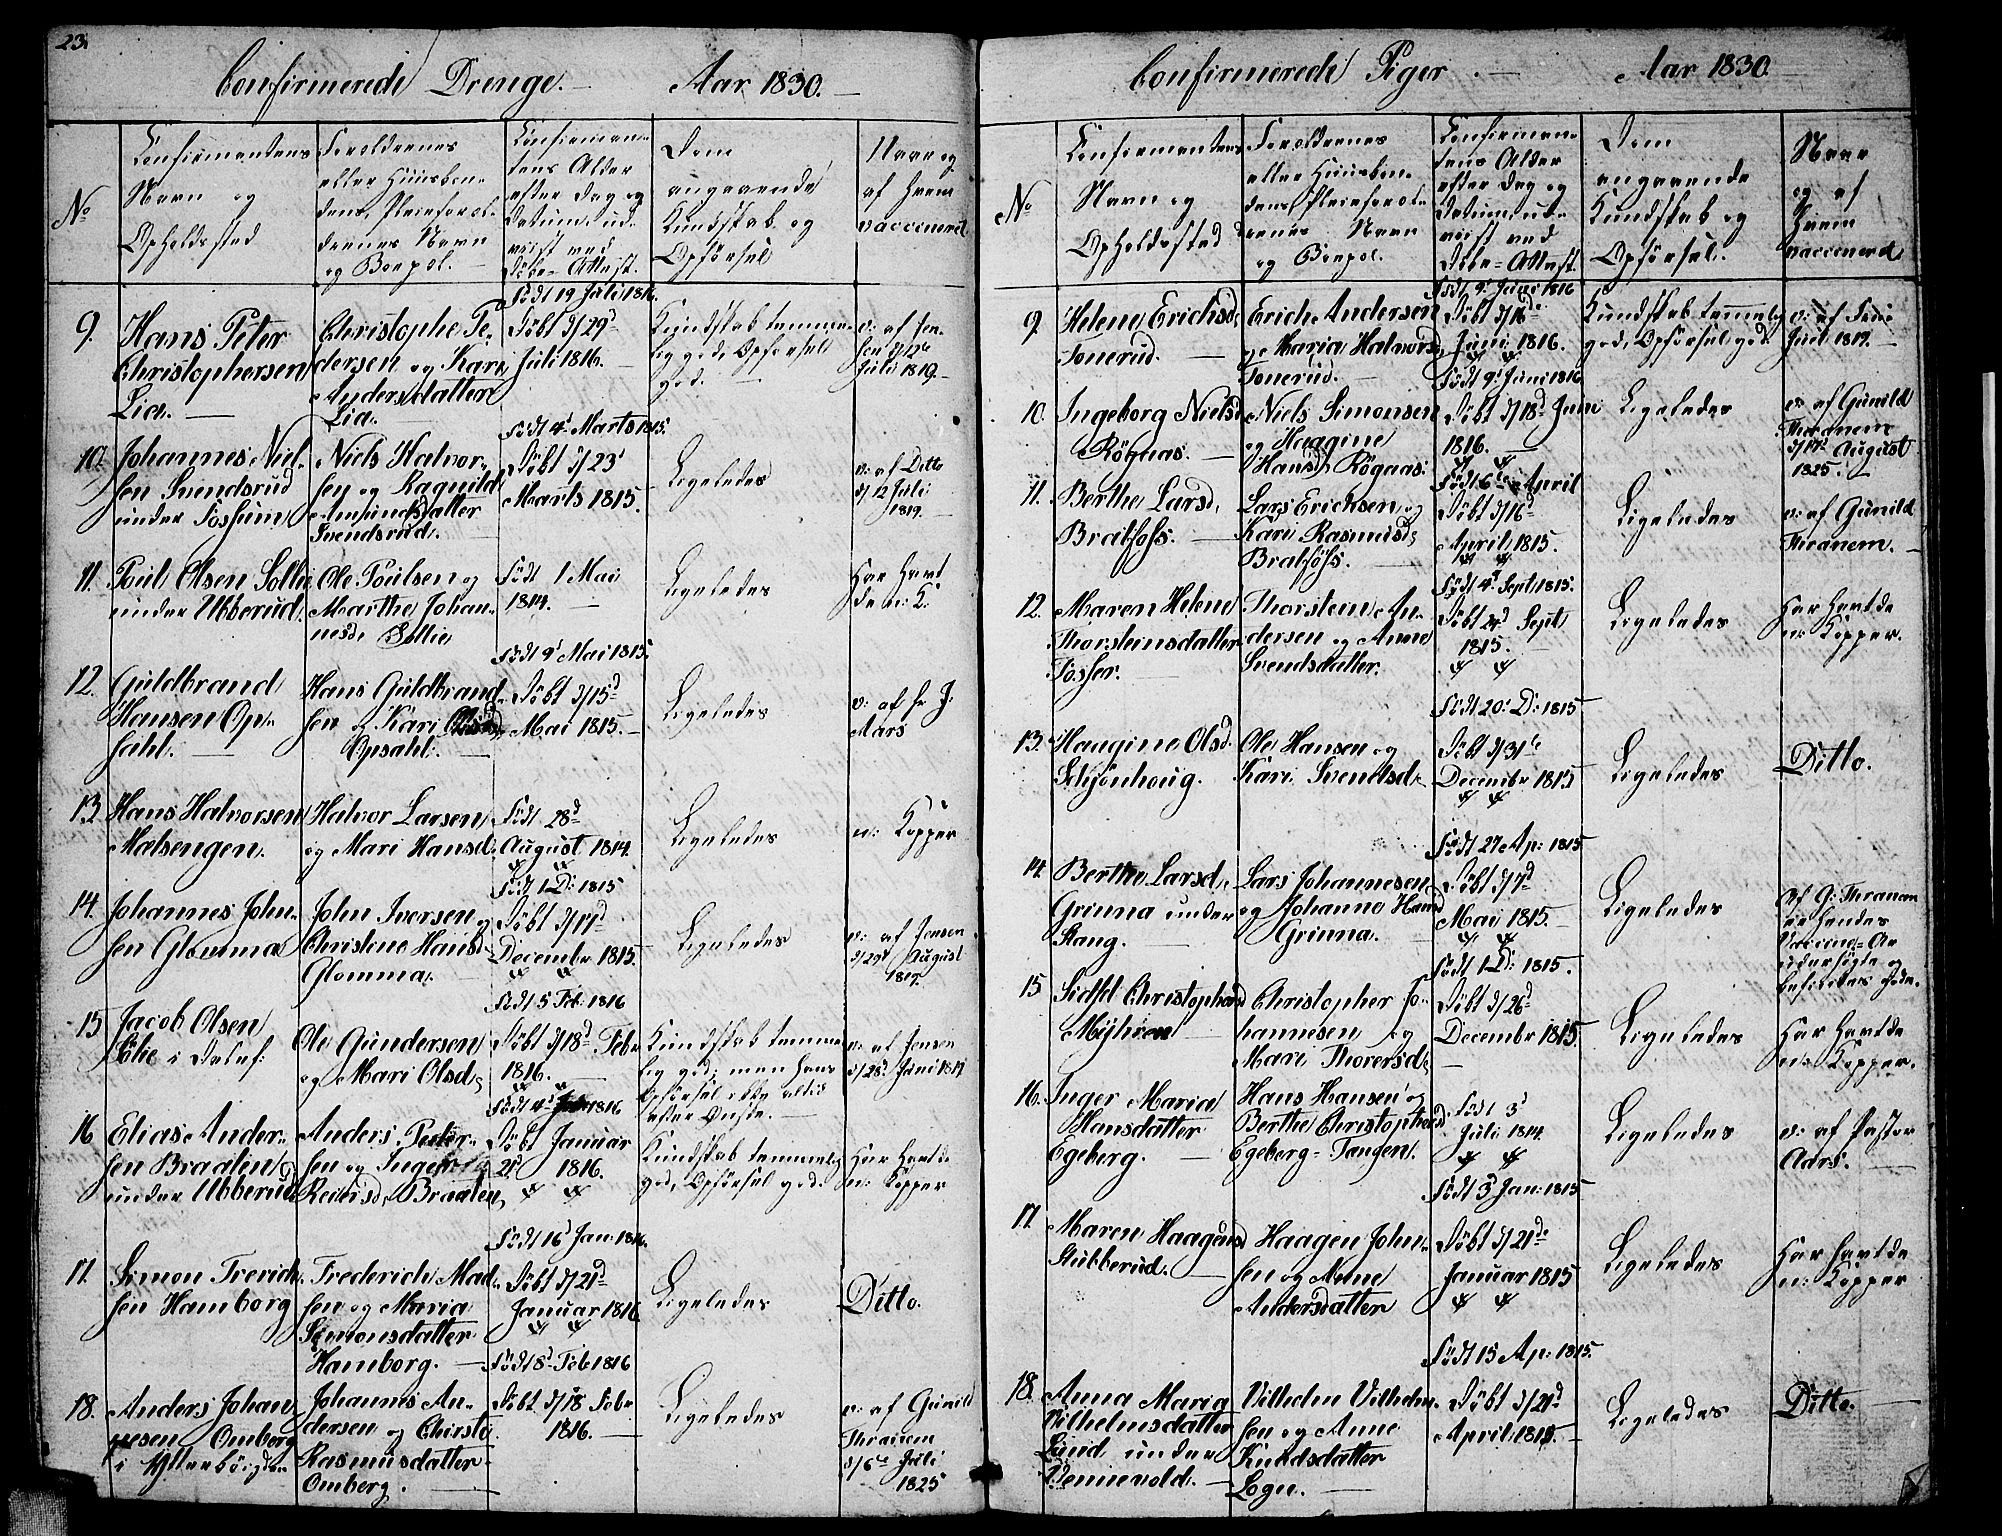 23.
Confirmerede Drenge. — Aar 1830. —
No
Confirmandens
Navn og
Opholdssted
Foreldrenes
eller Huusbon-
dens, Pleieforel-
drenes Navn
og Boepæl.
Confirman-
tens Alder
efter Dag og
Datum, ud-
viist ved
Døbe-Attest.
Dom
angaaende
Kundskab og
Opførsel
Naar og
af hvem
vaccineret
9.
Hans Peter
Christophersen
Lia. —
Christopher Pe-
dersen og Kari
Andersdatter
Lia. —
Født 19 Juli 1816.
Døbt d/29d
Juli 1816. —
Kundskab temme-
lig god, Opførsel
god. —
v: af Jen-
sen d/12te
Juli 1819. —
10.
Johannes Niel-
sen Svendsrud
under Fossum
Niels Halvor-
sen og Ragnild
Amundsdatter
Svendsrud.
Født 4d Marts 1815.
Døbt d/23d
Marts 1815.
Ligeledes
v: af Ditto
d/12 Juli
1819. —
11.
Poul Olsen Sollie
under Ubberud.
Ole Poulsen og
Marthe Johan-
nesd, Sollie
Født 1 Mai
1814. —
Ligeledes
Har havt
de n: K.
12.
Guldbrand
Hansen Op-
sahl. —
Hans Guldbrand-
sen & Kari Olsd
Opsahl. —
Født 9d Mai 1815.
Døbt d/15d
Mai 1815. —
Ligeledes
v: af Hr J:
Aars
13.
Hans Halvorsen
Melsengen.
Halvor Larsen
og Mari Hansd.
Født 28d
August 1814.
Ligeledes
n: Kopper
14.
Johannes John-
sen Glomma
John Iversen og
Christene Hansd
Glomma.
Født 1 D: 1815
Døbt d/17d
Decembr 1815.
Ligeledes
v: af Jensen
d/29d August
1819.
15
Jacob Olsen
Lie i Østlef:
Ole Gundersen
og Mari Olsd,
Født 5 Feb: 1816
Døbt d/18d Febr
1816. —
Kundskab temme-
lig god; men hans
Opførsel ikke altid
efter Ønske. —
v: af Jensen
d/28d Juni 1819
16
Elias Ander-
sen Braaten
under Ubberud
Anders Peder-
sen og Inger
Reiersd, Braaten
Født 4d 1816
Døbt Januar
21d 1816.
Kundskab temmelig
god, Opførsel god.
Har havt de
n: Kopper
17.
Simon Frerich-
sen Hamborg
Frederich Mad-
sen og Maria
Simonsdatter
Hamborg. —
Født 16d Jan: 1816.
Døbt d/21d
Januar 1816
Ligeledes
Ditto.
18.
Anders Johan-
nesen Omberg
i Ytterbøigden
Johannes An-
dersen og Chirsti
Rasmusdatter
Omberg. —
Født 8d Feb 1816
Døbt d/18 Febr
1816. —
Ligeledes
v: af Gunild
Thranem
d/6te Juli
1825
Confirmerede Piger. — Aar 1830.
No
Confirmantens
Navn og
Opholdssted
Foreldrenes
eller Huusbon-
dens, Pleieforel-
drenes Navn
og Boepæl.
Confirman-
tens Alder
efter Dag og
Datum ud-
viist ved
Døbe-Attest.
Dom
angaaende
Kundskab og
Opførsel.
Naar
og af
hvem
vaccinered
9.
Helene Erichsd,
Tonerud. —
Erich Andersen
og Maria Halvorsd
Tonerud. —
Født 9d Juni 1816
Døbt d/16de
Juni 1816.
Kundskab temmelig
god, Opførsel god
v: af
Juli 1819. —
10.
Ingeborg Nielsd
Rögnas. —
Niels Simonsen
og Haagine
Hansd, Rögnas.
Født 9d Juni 1816
Døbt d/18d Juni
1816.
Ligeledes
v: af Gunild
Thranem
d/17de August
1825. —
11.
Berthe Larsd,
Bratfoss. —
Lars Ericksen og
Kari Rasmusd,
Bratfoss. —
Født 6te April
Døbt d/16d
April 1815.
Ligeledes
v: af Gunild
Thranem. —
12.
Maren Helene
Thorsteinsdatter
Fosser. —
Thorstein An-
dersen og Anne
Svendsdatter.
Født 4d Sept 1815.
Døbt 24d Sept
1815. —
Ligeledes
Har havt de
n: Kopper.
13.
Haagine Olsd.
Schjönhoug.
Ole Hansen og
Kari Svendsd,
Født 20: D: 1815
Døbt d/31te
Decembr 1815
Ligeledes
Ditto.
14.
Berthe Larsd,
Grinna under
Stang. —
Lars Johannesen
og Johanne Hansd
Grinna. —
Født 27 Ap: 1815
Døbt d/7d
Mai 1815. —
Ligeledes
Af G: Thranem
er hendes
Vaccine-Ar
undersøgte og
befundne gode.
15
Sidsel Christophersd
Myhren
Christopher Jo-
hannesen og
Mari Thorersd,
Født 1 D: 1815.
Døbt d/26d
Decembr 1815.
Ligeledes
Har havt de
n: Kopper.
16.
Inger Maria
Hansdatter
Egeberg. —
Hans Hansen og
Berthe Christophersd
Egeberg-Tangen.
Født 3d
Juli 1814.
Ligeledes
v: af Pastor
Aars. —
17.
Maren Haagensd
Stubberud. —
Haagen John-
sen og Anne
Andersdatter
Født 3d Jan: 1815
Døbt d/21de
Januar 1815
Ligeledes
Har havt de
n: Kopper
18.
Anna Maria
Vilhelmsdatter
Lund under
Vennevold. —
Vilhelm Vilhelm-
sen og Anne
Knudsdatter
Logn. —
Født 15 Ap: 1815.
Døbt d/21d
April 1815. —
Ligeledes
Ditto. —